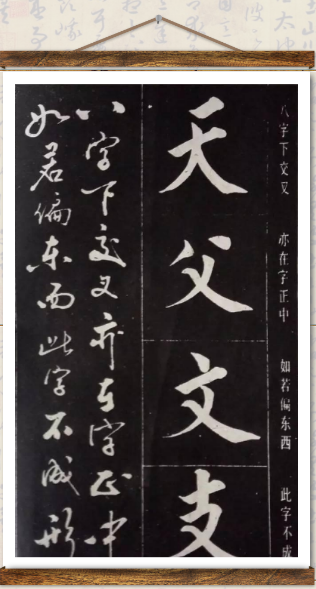 八字下交叉 亦在字正中 如若偏东西 此字不成
天
父
文
支
八字下交叉亦在字正中
如若偏东西此字不成形